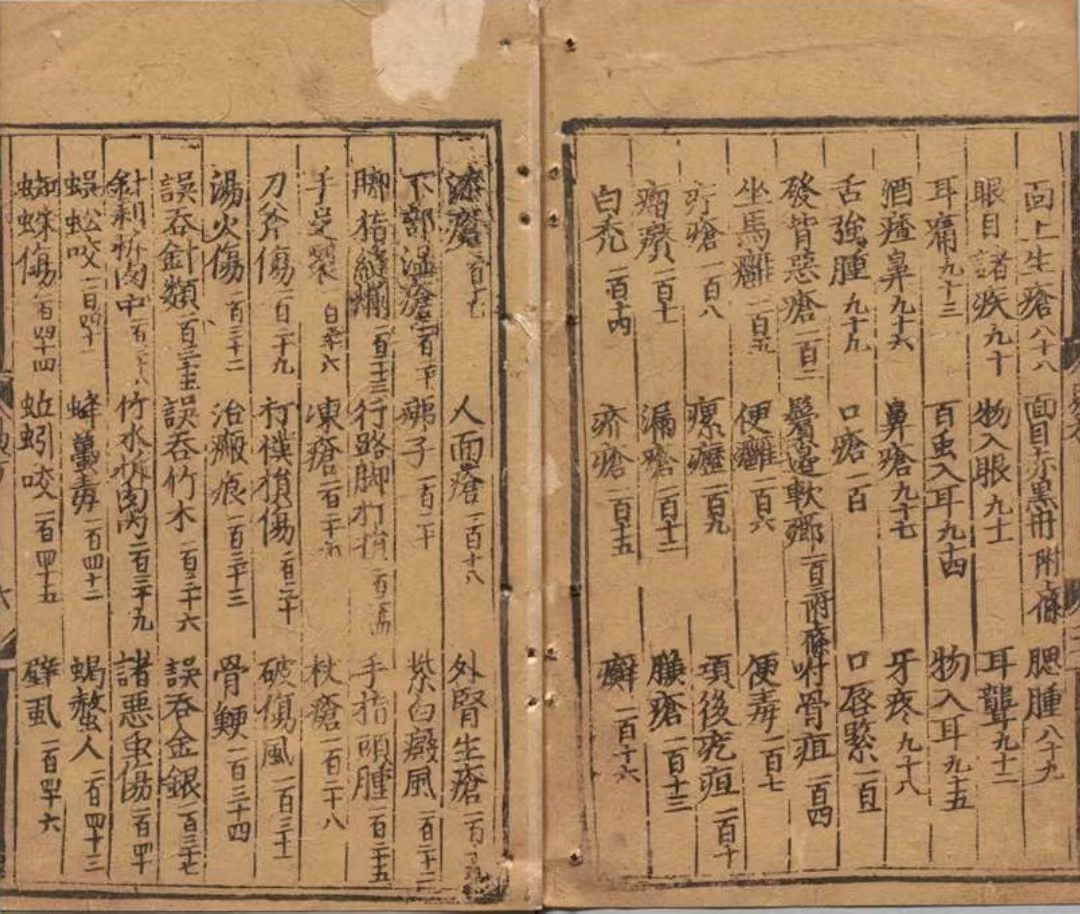 面上生瘡八十八 面目赤黑卅附條 腮腫八十九
眼目諸疾九十 物入眼九十一 耳聾九十二
耳痛九十三 百虫入耳九十四 物入耳九十五
酒𤿈鼻九十六 鼻瘡九十七 牙疼九十八
舌強腫九十九 口瘡一百 口唇緊一百一
發背惡瘡一百二 鬢邊軟癤一百三附條 附骨疽一百四
坐馬癰一百五 便癰一百六 便毒一百七
疔瘡一百八 瘰癧一百九 項後疙疸一百十
瘤癭一百十一 漏瘡一百十二 臁瘡一百十三
白禿一百十四 疥瘡一百十五 癬一百十六
漆瘡一百十七 人面瘡一百十八 外腎生瘡一百
下部湿瘡一百二十 痱子一百二十 紫白癜風一百二十二
脚指縫爛一百二十三 行路脚打 一百二十四 手指頭腫一百二十五
手 一百二十六 凍瘡一百二十 杖瘡一百二十八
刀斧傷一百二十九 打撲損傷一百三十 破傷風一百三十一
湯火傷一百三十二 治瘢痕一百三十三 骨鯁一百三十四
誤吞針類一百三十五 誤吞竹木一百三十六 誤吞金銀一百三十七
針刺折肉中一百三十八 竹木折肉內一百三十九 諸惡虫傷一百四十
蜈蚣咬一百四十一 蜂蠆毒一百四十二 蝎螫人一百四十三
蜘蛛傷一百四十四 蚯蚓咬一百四十五 壁虱一百四十六